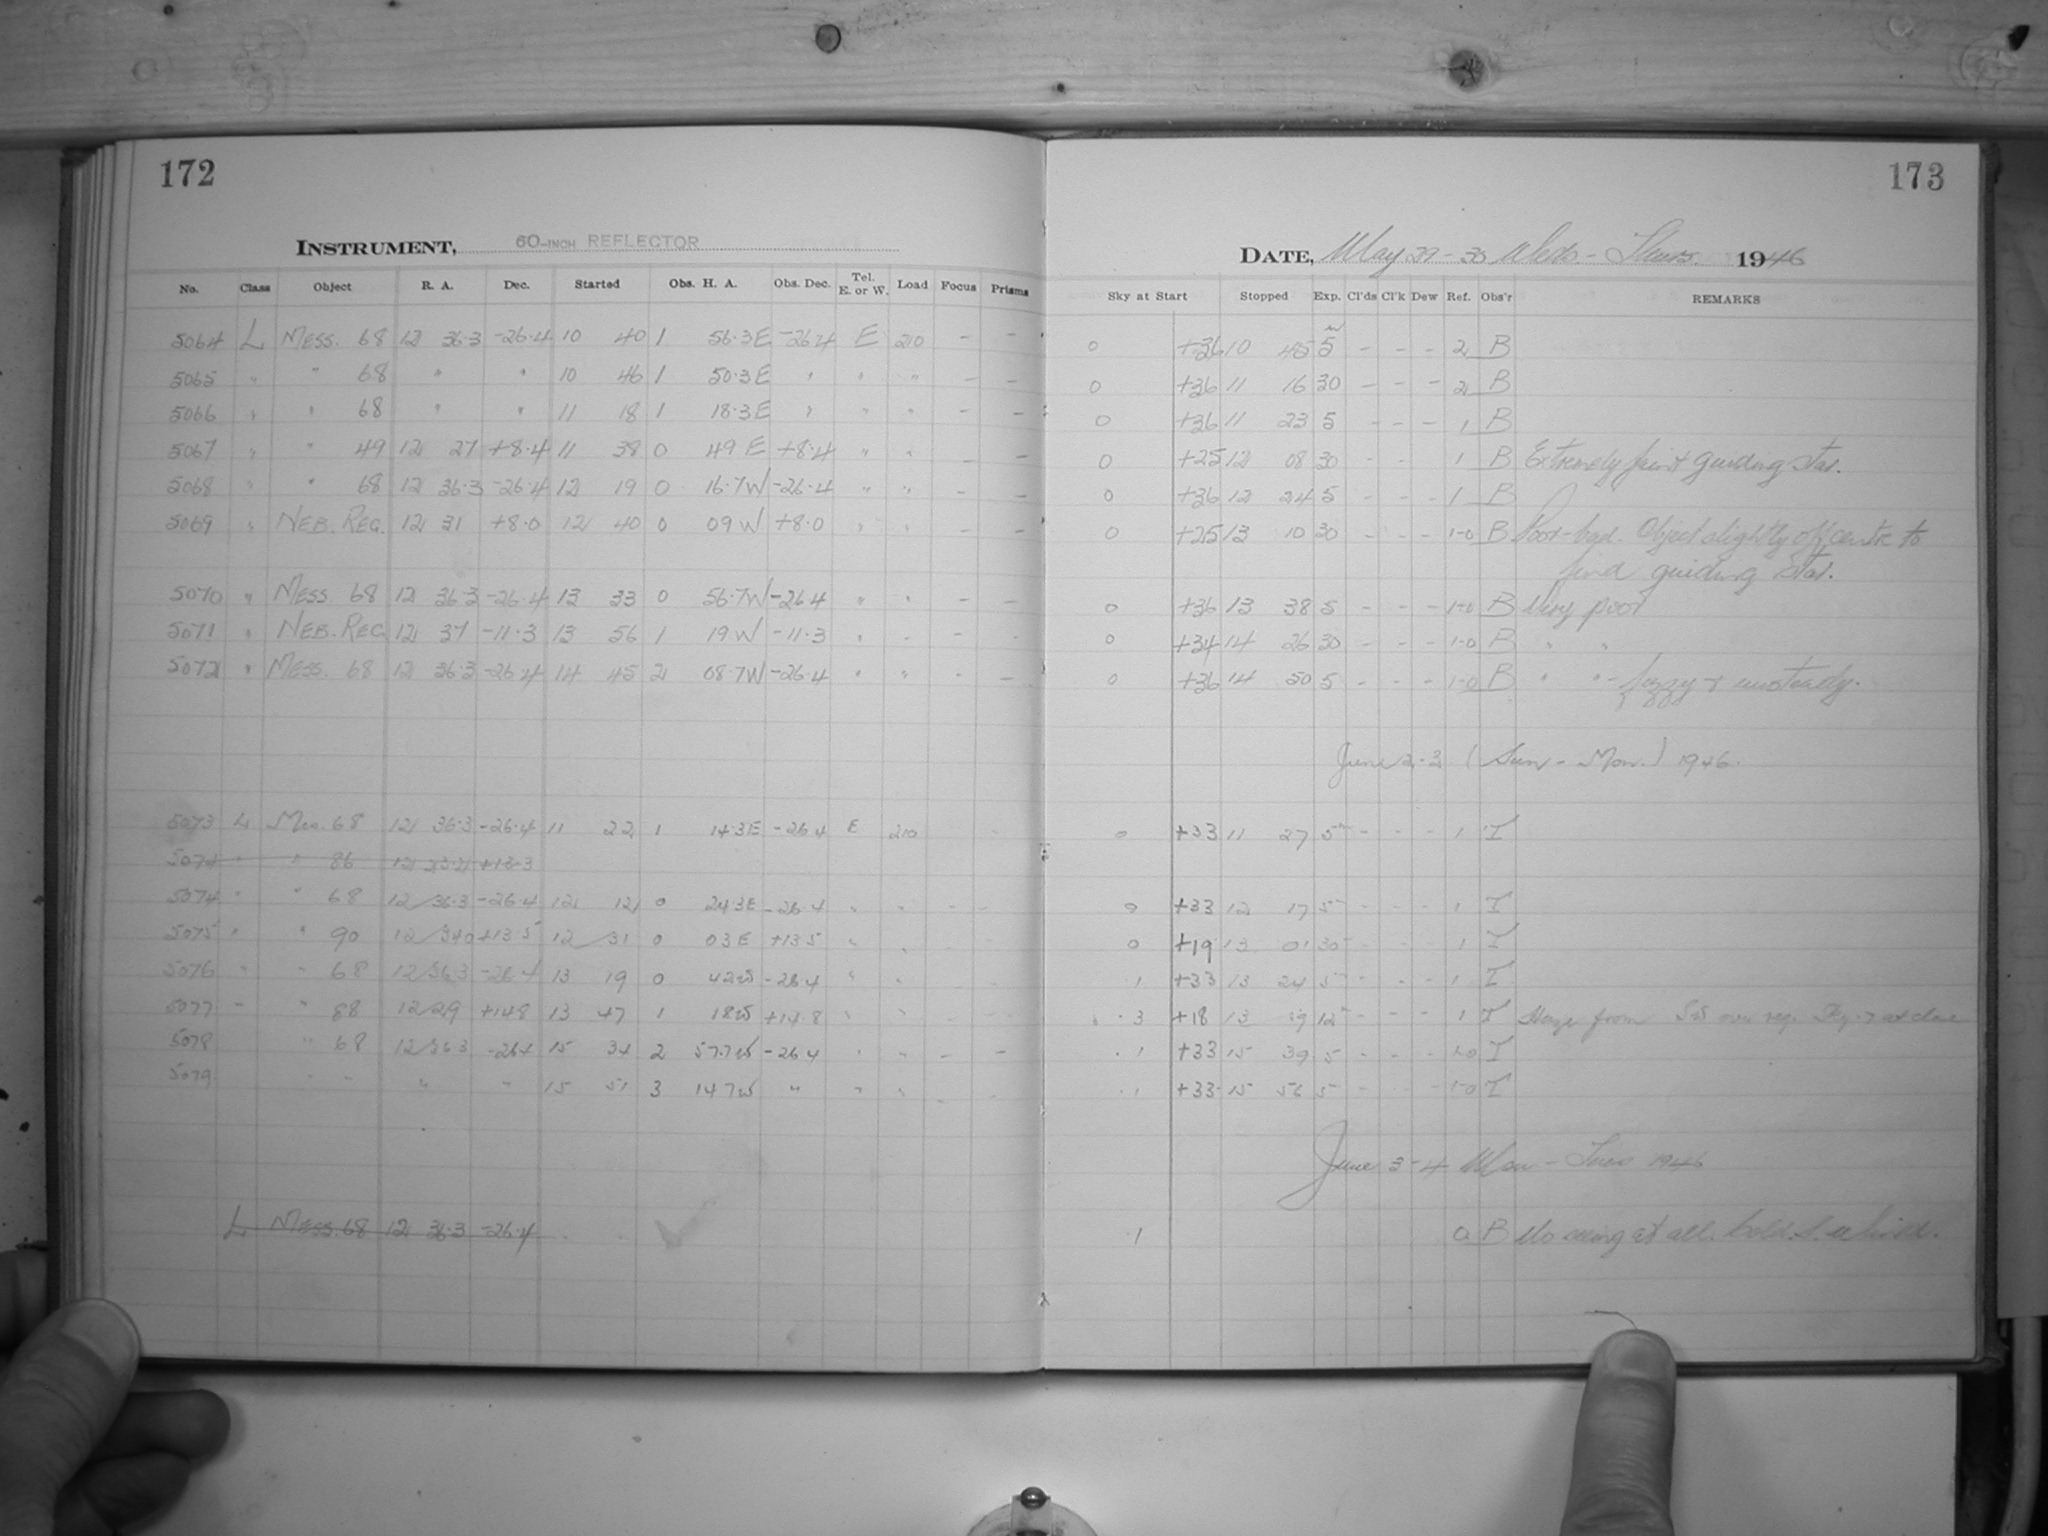 172
INSTRUMENT, 60-INCH REFLECTOR
No. Class Object R. A. Dec. Started Obs. H. A. Obs. Dec. Tel. E. or W. Load Focus Prisms
5064 L MESS. 68 12 36.3 -26.4 10 40 1 56.3E -26.4 E 210 - -
5065 " " 68 " " 10 46 1 50.3E " " " - -
5066 " " 68 " " 11 18 1 18.3E " " " - -
5067 " " 49 12 27 +8.4 11 38 0 49 E +8.4 " " - -
5068 " " 68 12 36.3 -26.4 12 19 0 16.7W -26.4 " " - -
5069 " NEB. REG. 12 31 +8.0 12 40 0 09 W +8.0 " " - -
5070 " MESS. 68 12 36.3 -26.4 13 33 0 56.7W -26.4 " " - -
5071 " NEB. REG 12 37 -11.3 13 56 1 19W -11.3 " " - -
5072 " MESS. 68 12 36.3 -26.4 14 45 2 08.7W -26.4 " " - -
5073 L Mess. 68 12 36.3 -26.4 11 22 1 14.3E -26.4 E 210
5074 " " 86 12 23.2 +13.3
5074 " " 68 12 36.3 -26.4 12 12 0 24.3E -26.4 " " - -
5075 " " 90 12 34.0 +13.5 12 31 0 03E +13.5 " "
5076 " " 68 12 36.3 -26.4 13 19 0 42W -26.4 "
5077 " " 88 12 29 +14.8 13 47 1 18W +14.8 " "
5078 " 68 12 36.3 -26.4 15 34 2 57.7W -26.4 " " - -
5079 " " " " 15 51 3 14.7W " " "
L MESS. 68 12 36.3 -26.4
173
DATE, May 29 - 30 Weds - Thurs. 1946
Sky at Start Stopped Exp. Cl'ds Cl'k Dew Ref. Obs'r REMARKS
0 +36 10 45 5m - - - 2 B
0 +36 11 16 30 - - - 2 B
0 +36 11 23 5 - - - 1 B
0 +25 12 08 30 - - 1 B Extremely faint guiding star.
0 +36 12 24 5 - - - 1 B
0 +25 13 10 30 - - - 1-0 B Poor-bad. Object slightly off centre to
find guiding star.
0 +36 13 38 5 - - - 1-0 B Very poor
0 +34 14 26 30 - - - 1-0 B " "
0 +36 14 50 5 - - - 1-0 B " " - fuzzy & unsteady.
June 2-3 (Sun - Mon.) 1946.
0 +33 11 27 5m - - - 1 I
0 +33 12 17 5 - - - 1 I
0 +19 13 01 30 - - - 1 I
.1 +33 13 24 5 - - - 1 I
.3 +18 13 59 12m - - - 1 I Haze from SW over reg. Sky .7 at close
.1 +33 15 39 5 - - - 1-0 I
.1 +33 15 56 5 - - - 1-0 I
June 3-4 Mon - Tues 1946
.1 0 B No seeing at all. Cold S. wind.